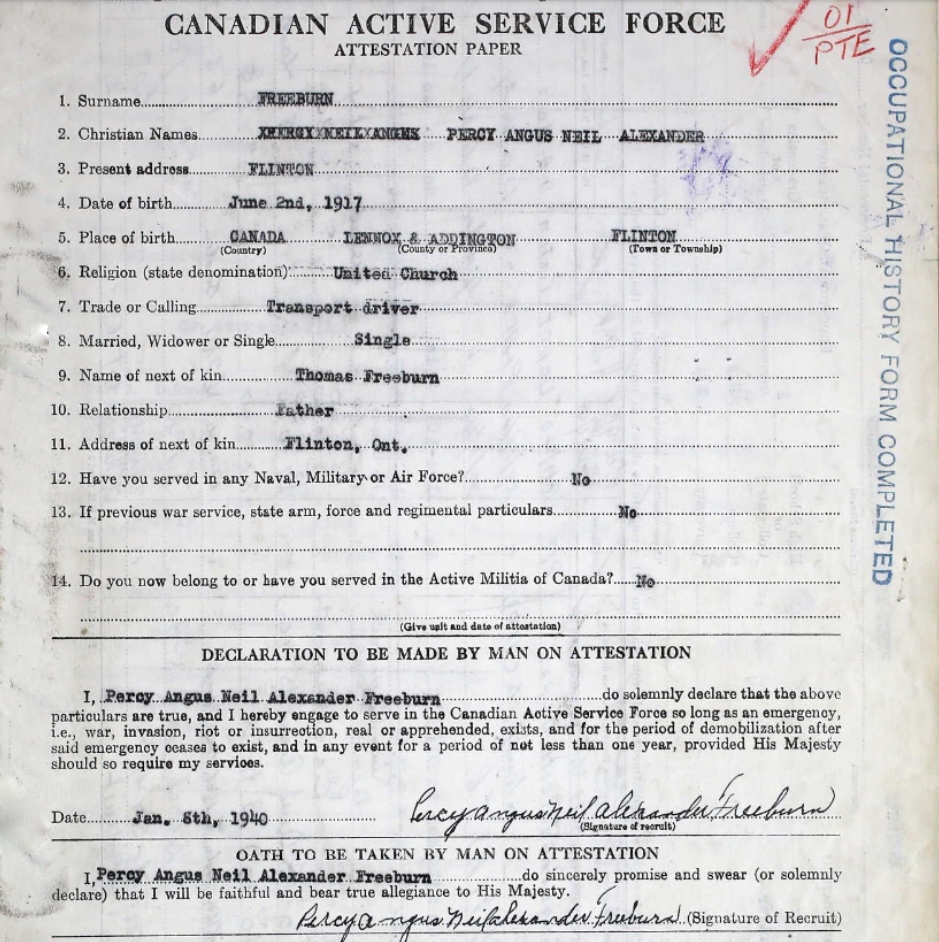 CANADIAN ACTIVE SERVICE FORCE
ATTESTATION PAPER
01
PTE
OCCUPATIONAL HISTORY FORM COMPLETED
1. Surname FREEBURN
2. Christian Names PERCY ANGUS NEIL ALEXANDER
3. Present address FLINTON
4. Date of birth June 2nd, 1917
5. Place of birth CANADA LENNOX & ADDINGTON FLINTON
(Country) (County or Province) (Town or Township)
6. Religion (state denomination) United Church
7. Trade or Calling Transport driver
8. Married, Widower or Single Single
9. Name of next of kin Thomas Freeburn
10. Relationship Father
11. Address of next of kin Flinton, Ont.
12. Have you served in any Naval, Military or Air Force? No
13. If previous war service, state arm, force and regimental particulars No
14. Do you now belong to or have you served in the Active Militia of Canada? No
(Give unit and date of attestation)
DECLARATION TO BE MADE BY MAN ON ATTESTATION
I, Percy Angus Neil Alexander Freeburn do solemnly declare that the above
particulars are true, and I hereby engage to serve in the Canadian Active Service Force so long as an emergency,
i.e., war, invasion, riot or insurrection, real or apprehended, exists, and for the period of demobilization after
said emergency ceases to exist, and in any event for a period of not less than one year, provided His Majesty
should so require my services.
Date Jan. 8th, 1940 Percy Angus Neil Alexander Freeburn
(Signature of recruit)
OATH TO BE TAKEN BY MAN ON ATTESTATION
I, Percy Angus Neil Alexander Freeburn do sincerely promise and swear (or solemnly
declare) that I will be faithful and bear true allegiance to His Majesty.
Percy Angus Neil Alexander Freeburn (Signature of Recruit)